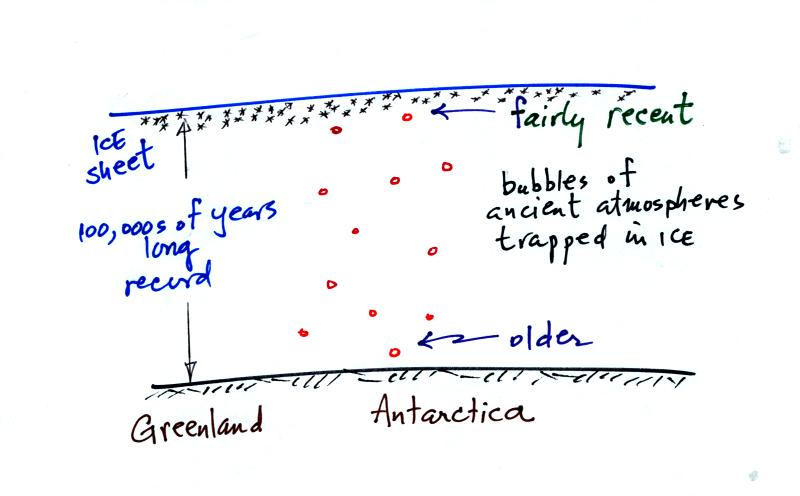 fairly recent
ICE
sheet
100,000s of years
long
record
bubbles of
ancient atmospheres
trapped in ICE
older
Greenland
Antarctica